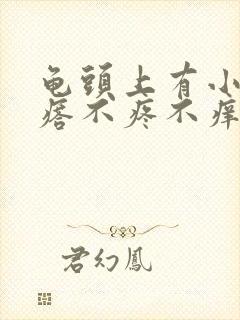 龟頭上有小
瘩不疼不痒
君幻鳳